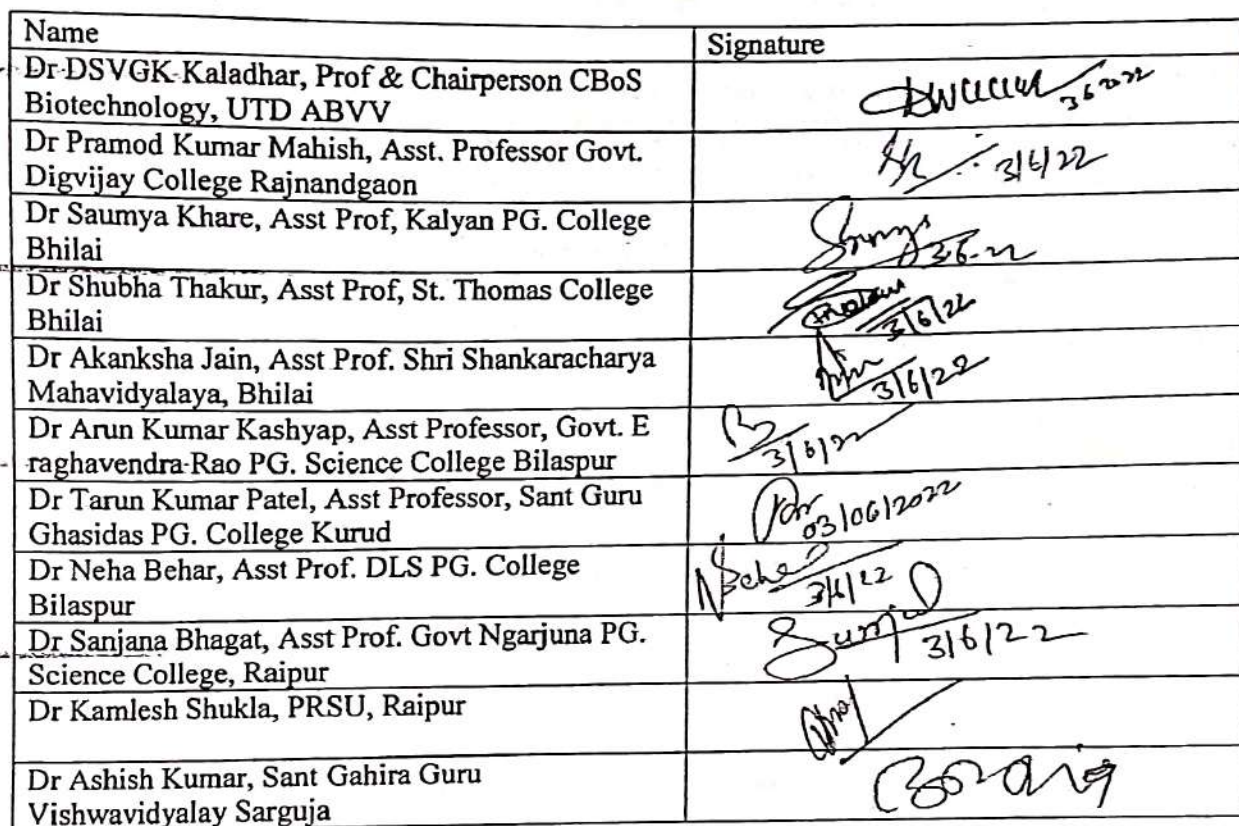 Name
Signature
Dr DSVGK Kaladhar, Prof & Chairperson CBoS
Biotechnology, UTD ABVV
3 6 2022
Dr Pramod Kumar Mahish, Asst. Professor Govt.
Digvijay College Rajnandgaon
3/6/22
Dr Saumya Khare, Asst Prof, Kalyan PG. College
Bhilai
3-6-22
Dr Shubha Thakur, Asst Prof, St. Thomas College
Bhilai
3/6/22
Dr Akanksha Jain, Asst Prof. Shri Shankaracharya
Mahavidyalaya, Bhilai
3/6/22
Dr Arun Kumar Kashyap, Asst Professor, Govt. E
raghavendra Rao PG. Science College Bilaspur
3/6/22
Dr Tarun Kumar Patel, Asst Professor, Sant Guru
Ghasidas PG. College Kurud
03/06/2022
Dr Neha Behar, Asst Prof. DLS PG. College
Bilaspur
3/6/22
Dr Sanjana Bhagat, Asst Prof. Govt Ngarjuna PG.
Science College, Raipur
3/6/22
Dr Kamlesh Shukla, PRSU, Raipur
Dr Ashish Kumar, Sant Gahira Guru
Vishwavidyalay Sarguja